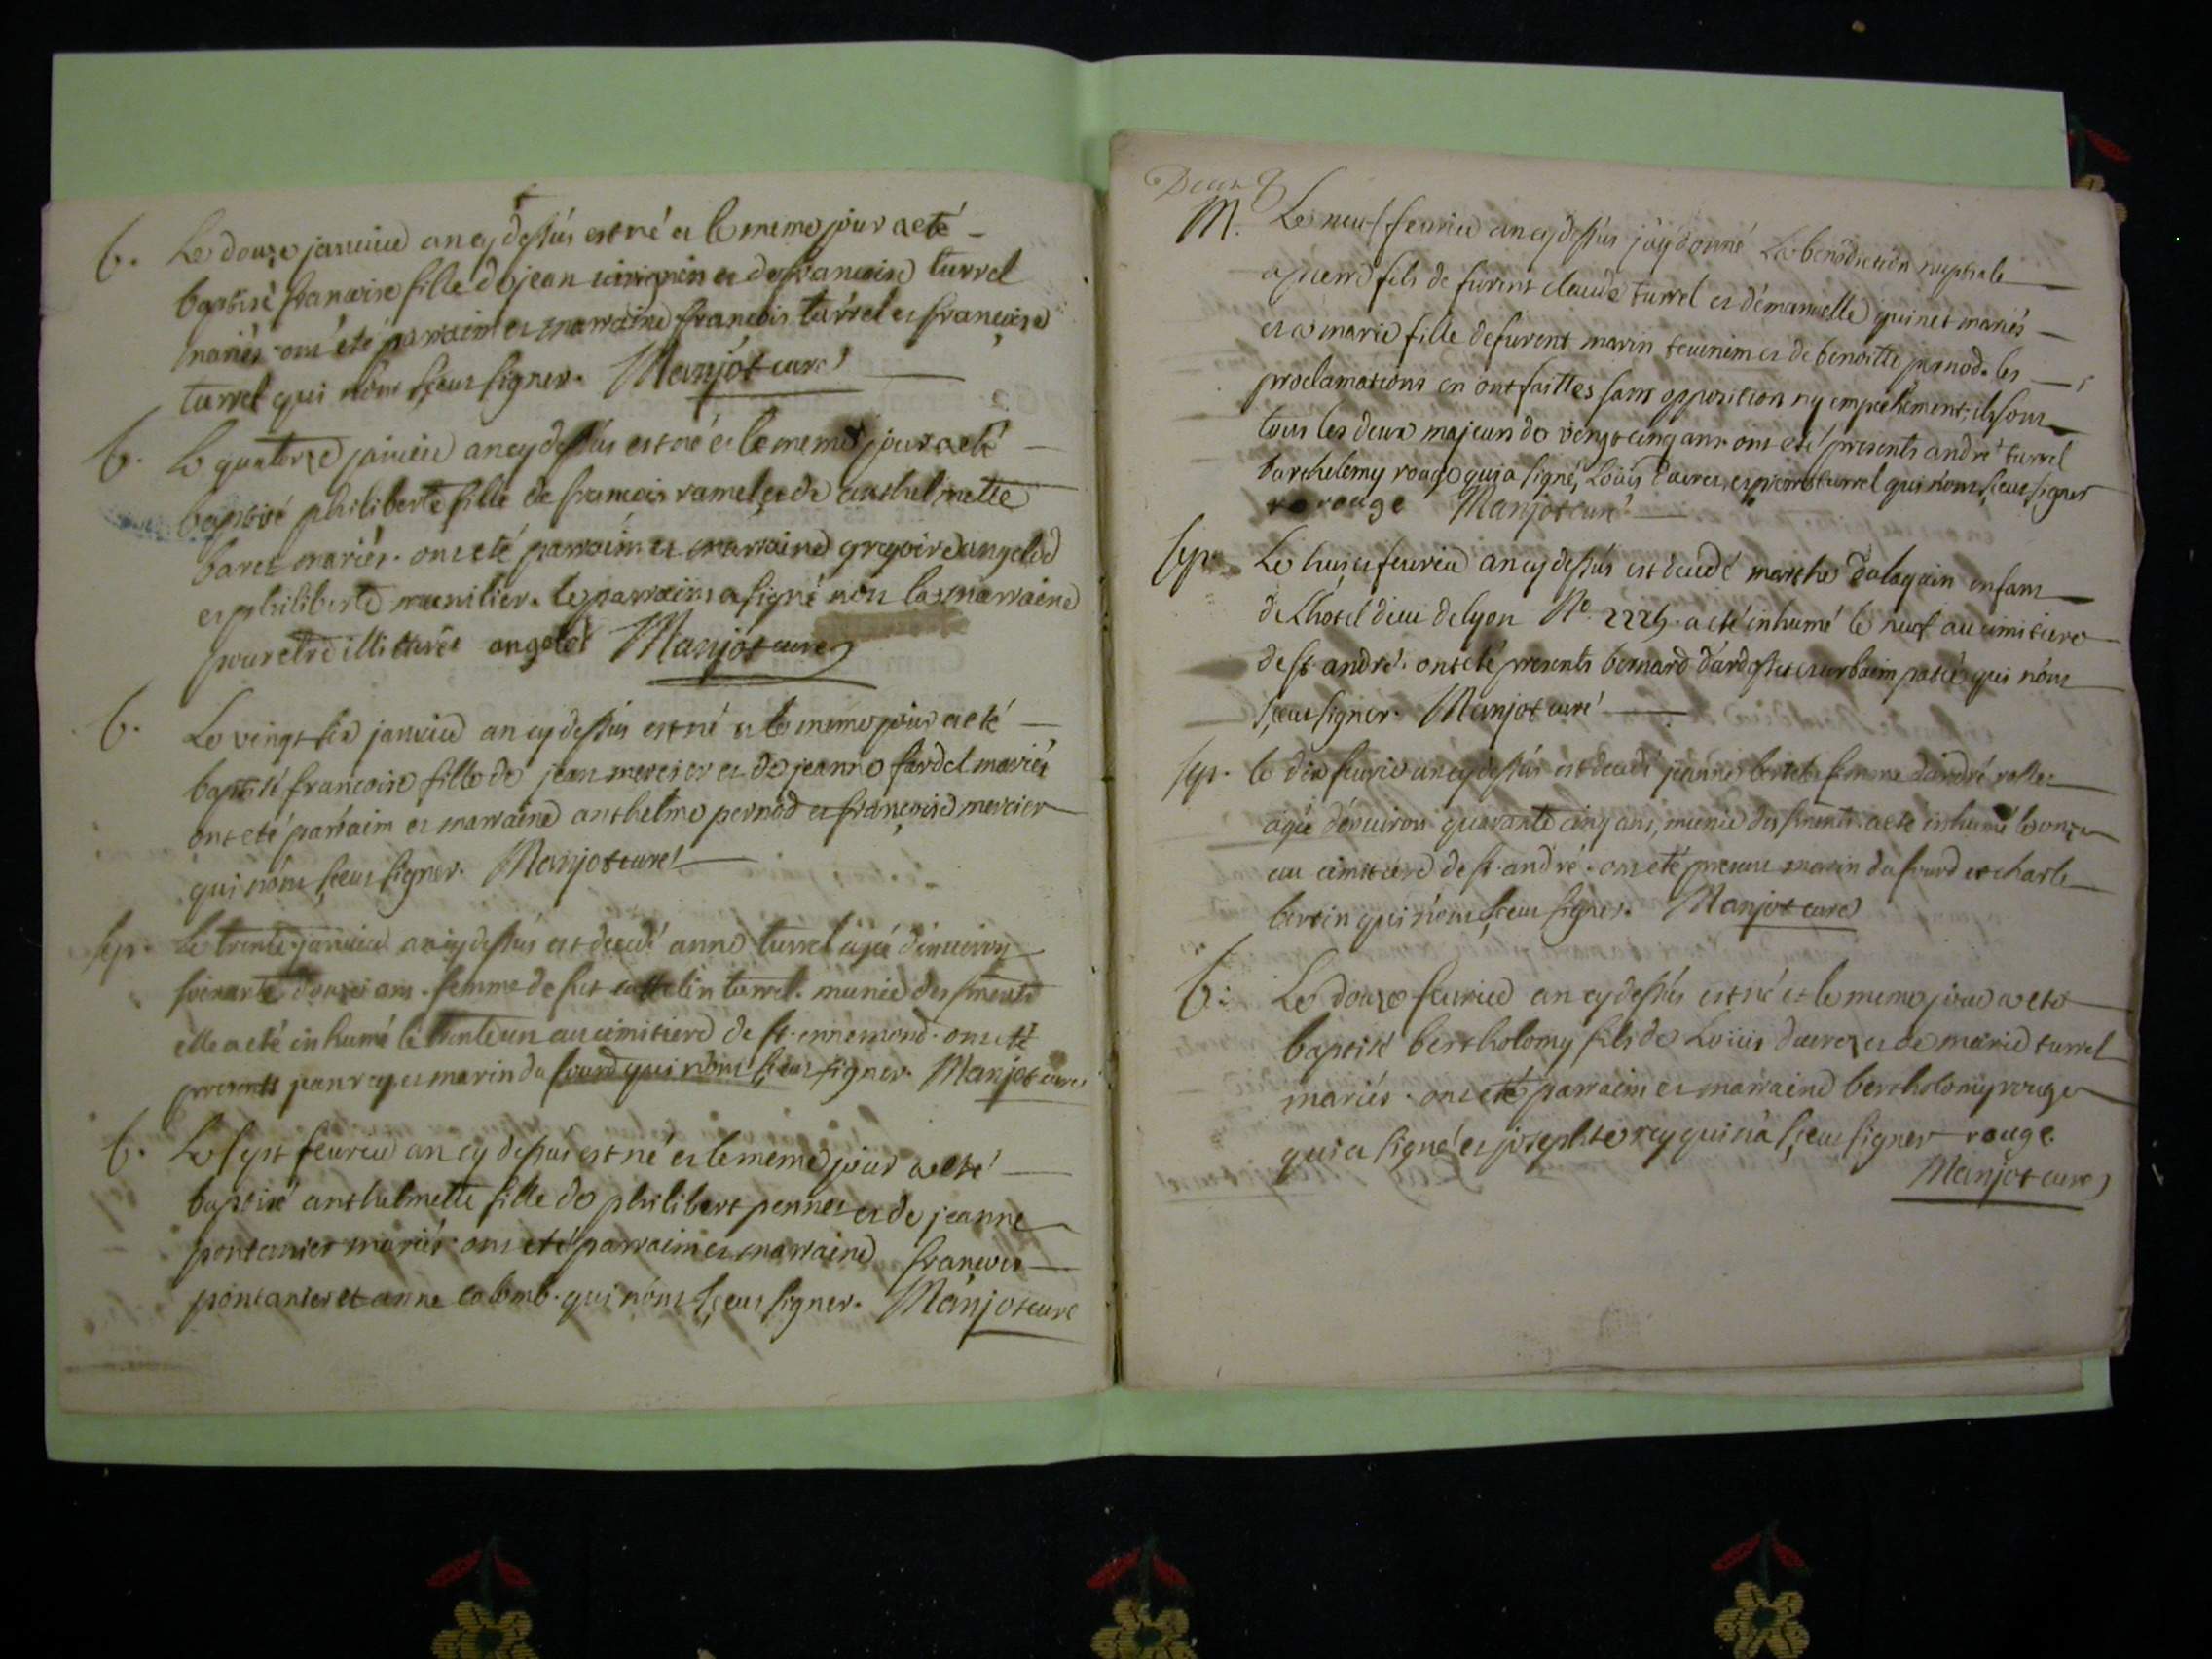 b. Le douze januier an cy dessus est né et le meme jour a eté
baptisé francoise fille de jean et de francoise turrel
mariés ont été parraim et marraine francois turrel et françoise
turrel qui nont sceut signer. Manjot curé
b. Le quatorze januier an cy dessus est né et le meme jour a eté
baptisé philiberte fille de francois ramel et de anthelmette
baret mariés. ont eté parraim et marraine gregoire angelod
et philiberte meunilier. le parraim a signé non la marraine
pour etre illitturée angelot Manjot curé
b. Le vingt six januier an cy dessus est né et le meme jour a eté
baptisé francoise fille de jean mercier et de jeanne fardel mariés
ont eté parraim et marraine anthelme pernod et françoise mercier
qui nont sceut signer. Manjot curé
sep. Le trente januier an cy dessus est decedé anne turrel agée d'enuiron
soixante douze ans. femme de fut turrel. munie des srments
elle a eté inhumé le trente un au cimitiere de st. ennemond. ont eté
presents jean rey et marin du fourd qui nont sceut signer. Manjot curé
b. Le sept feurier an cy dessus est né et le meme jour a eté
baptisé anthelmette fille de philibert pennet et de jeanne
pontanier mariés. ont eté parraim et marraine francois
pontanier et anne colomb. qui nont sceut signer. Manjot curé
Deux
M. Le neuf feurier an cy dessus j'ay donné La benediction nuptiale
a pierre fils de furent claude turrel et d'emanuelle quinet mariés
et a marie fille de furent marin teuenim et de benoitte pernod. les
proclamations en ont faittes sans opposition ny empechement. ils sont
tous les deux majeurs de vingt cinq ans. ont eté presents andré turrel
barthelemy rouge qui a signé, Louis et pierre turrel qui nont sceut signer
rouge Manjot curé
sep. Le huit feurier an cy dessus est decedé marthe dalagain enfant
de Lhotel dieu de lyon No. 2225. a eté inhumé le neuf au cimitiere
de st. andré. ont eté presents bernard et urbain qui nont
sceut signer. Manjot curé
sep. le dix feurier an cy dessus est decedé jeanne femme d'andré rollet
agée d'enuiron quarante cinq ans, munie des srments. a eté inhumé le onze
au cimitiere de st. andré. ont eté presens marin du fourd et charle
bertin qui nont sceut signer. Manjot curé
b. Le douze feurier an cy dessus est né et le meme jour a eté
baptisé bertholomy fils de Louis et de marie turrel
mariés. ont eté parraim et marraine bertholomy rouge
qui a signé et josephte rey qui n'a sceut signer rouge.
Manjot curé